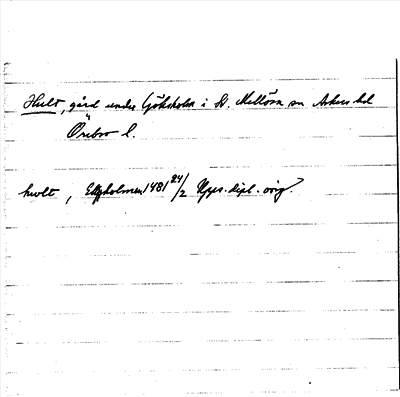 Hult, gård under Göksholm i St. Mellösa sn Askers hd
Örebro l.
hwlt, Ekholmen 1481 24/2 Upps. dipl. orig.